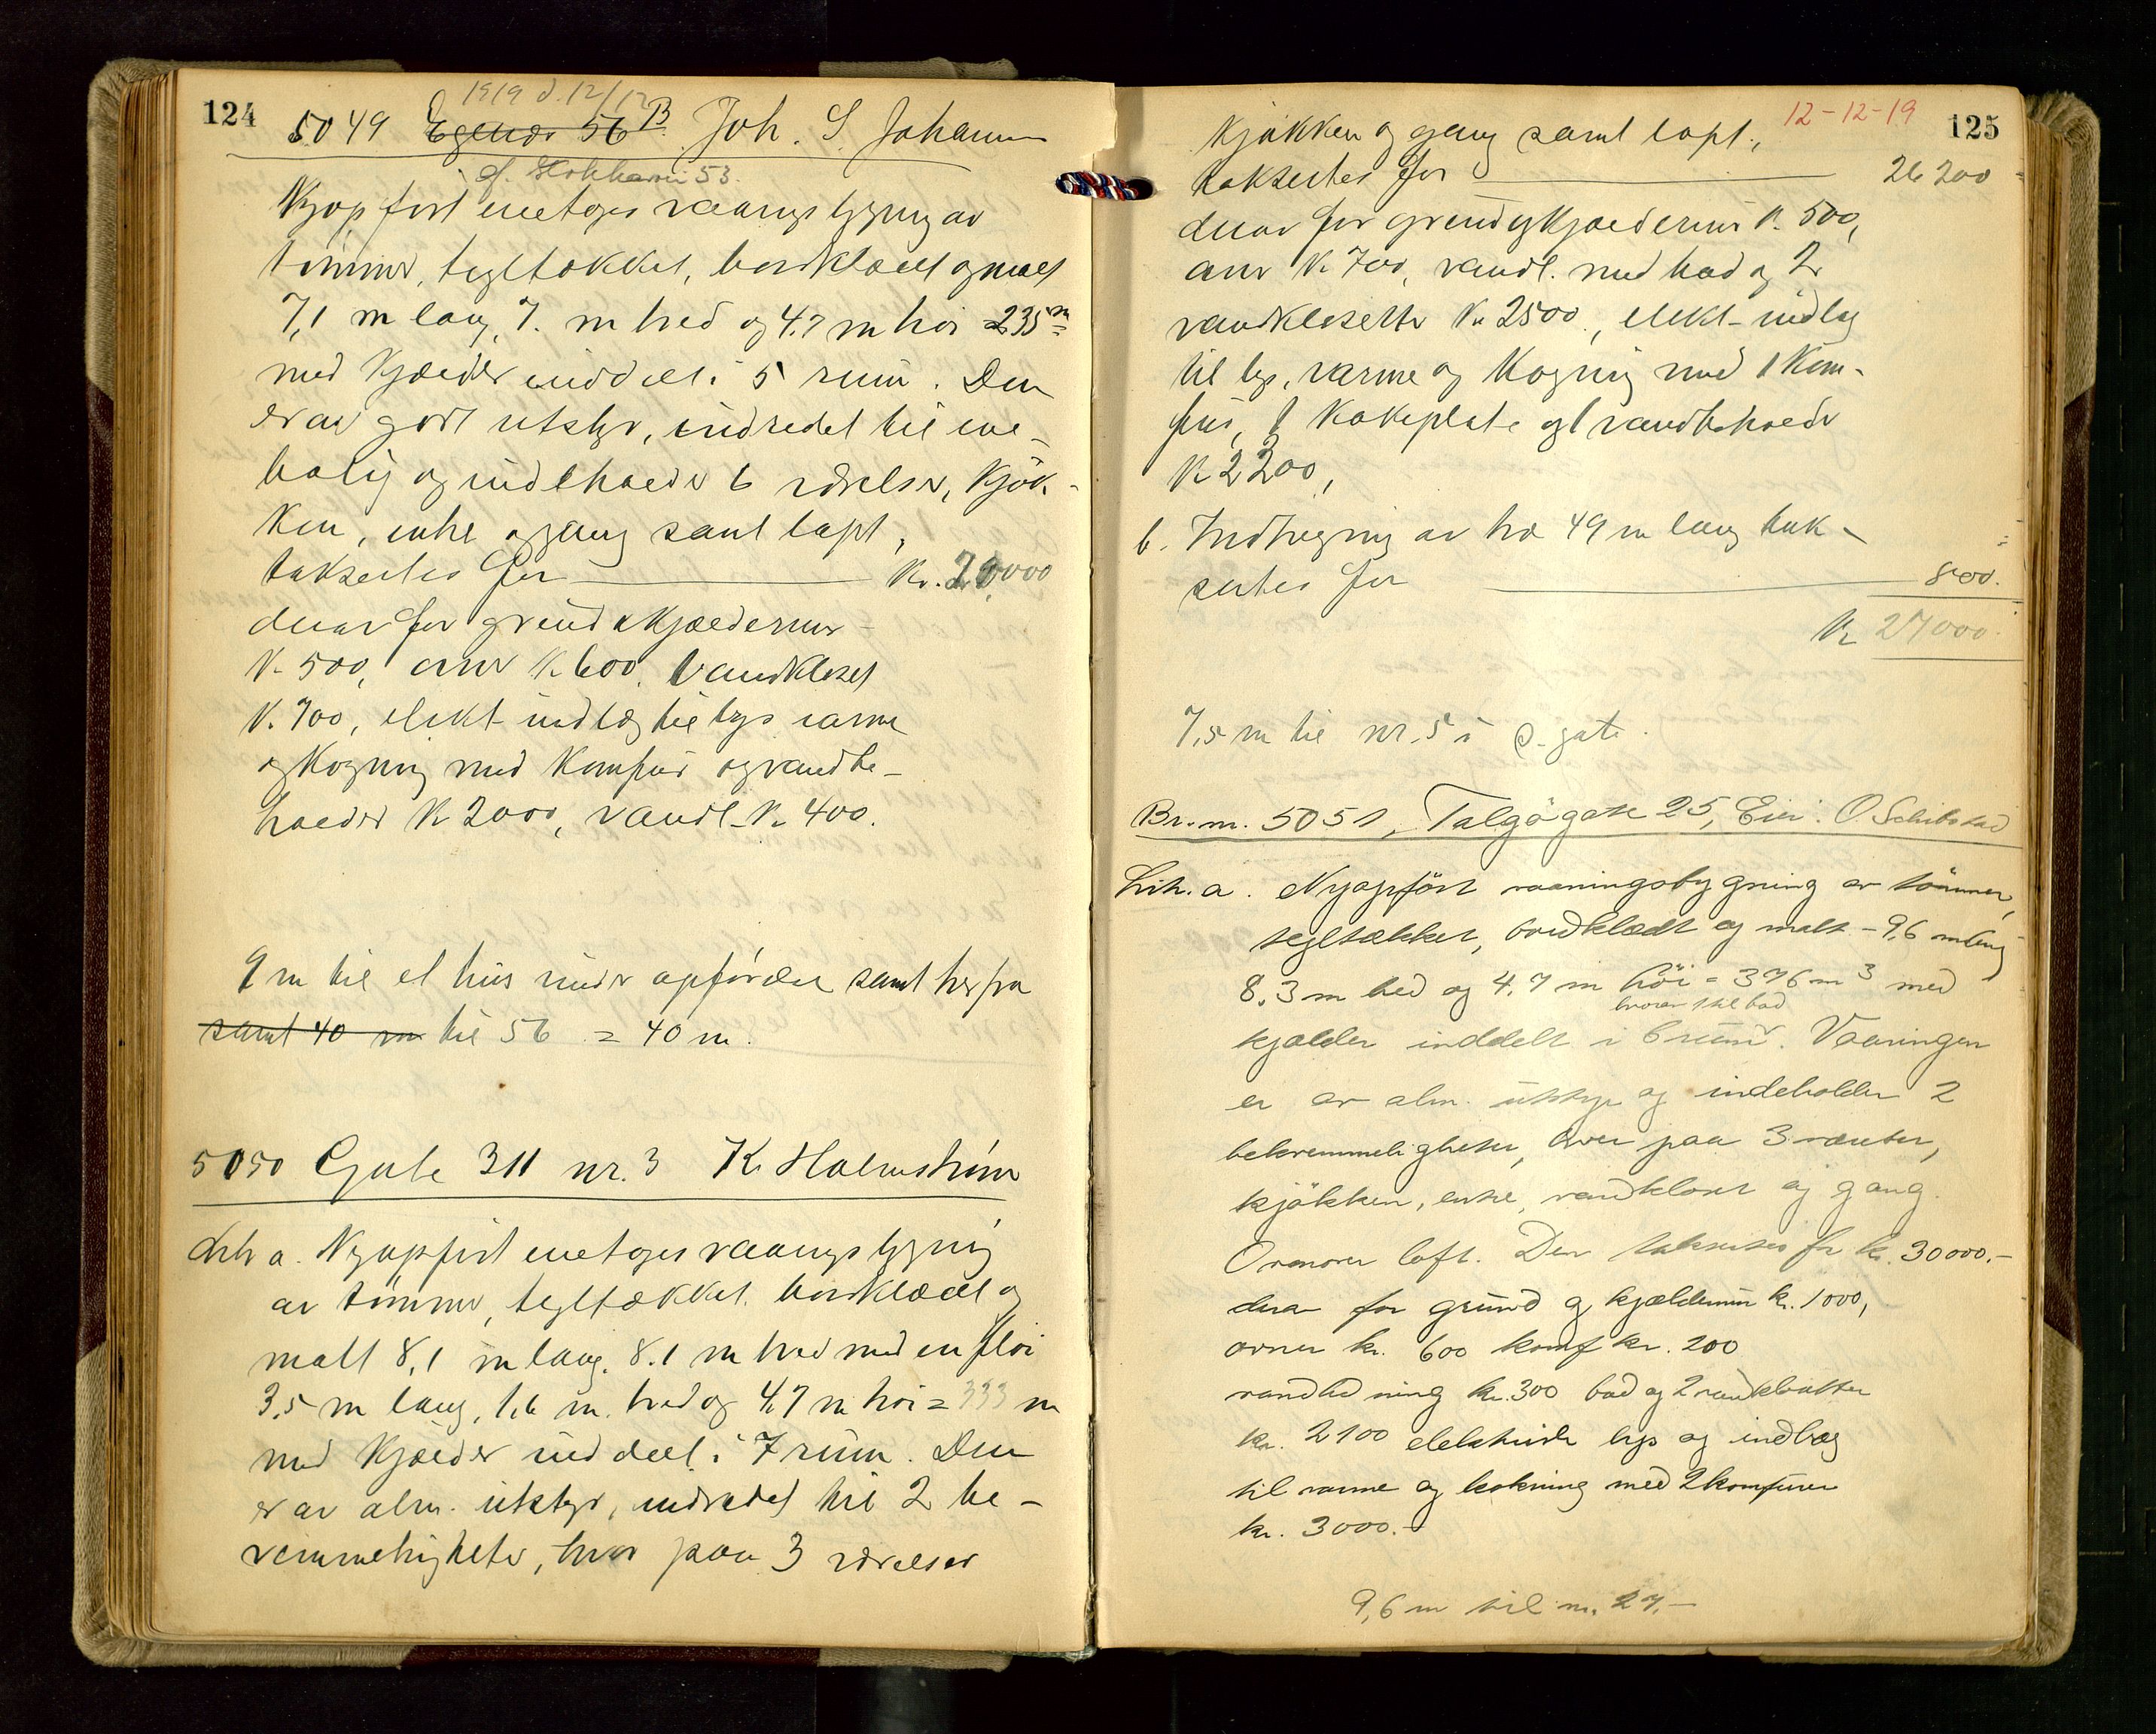 124
1919 d. 12/12
5049 Egenes 56 B. Joh. S. Johannsen
cf. Stokkavei 53.
Nyopført enetages vaaningsbygning av
tømmer, tegltækket, bordklædt og malt
7,1 m lang, 7. m bred og 4.7 m høi = 235 m
med kjælder inddelt i 5 rum. Den
er av godt utstyr, indredet til ene-
bolig og indeholder 6 værelser, kjøk-
ken, entre og gang samt loft,
takseres for Kr. 20,000
derav for grund & kjældermur
Kr 500, ovner Kr 600, Vandkloset
Kr. 700, elekt. indlæg til lys varme
og kogning med komfur og vandbe-
holder Kr 2000, vandl. Kr 400.
9 m til et hus under opførelse samt herfra
samt 40 m til 56 = 40 m.
5050 Gate 311 nr. 3 K. Holmstrøm
Litr a. Nyopført enetages vaaningsbygning
av tømmer, tegltækket, bordklædt og
malt 8,1 m lang, 8.1 m bred med en fløi
3,5 m lang, 1,6 m. bred og 4,7 m høi = 333 m
med kjælder inddelt i 7 rum. Den
er av alm. utstyr, indredet til 2 be-
kvemmeligheter, hver paa 3 værelser
12-12-19
125
kjøkken og gang samt loft,
takseres for 26 200
derav for grund og kjældermur Kr. 500,
ovner Kr 700, vandl. med bad og 2
vandklosetter Kr 2500, elekt. indlæg
til lys, varme og kogning med 1 kom-
fur, 1 kokeplate og 1 vandbeholder
Kr 2200,
b. Indhegning av træ 49 m lang tak-
seres for 800.
Kr 27000.
7,5 m til nr. 5 i s. gate.
Br. nr. 5051, Talgøgate 25, Eier: O. Schibstad
Litr. a. Nyopført vaaningsbygning av tømmer,
tegltækket, bordklædt og malt - 9,6 m lang
8.3 m bred og 4.7 m høi = 376 m³ med
hvorav 1 til bad
kjælder inddelt i 6 rum. Vaaningen
er av alm. utstyr og indeholder 2
bekvemmeligheter, hver paa 3 værelser,
kjøkken, entre, vandkloset og gang.
Ovenover loft. Den takseres for kr. 30000.-
derav for grund og kjældermur kr. 1000,
ovner kr. 600 komf kr. 200
vandledning kr. 300 bad og 2 vandklosetter
kr. 2100 elektriske lys og indlæg
til varme og kokning med 2 komfurer
kr. 3000.-
9,6 m til nr. 27.-